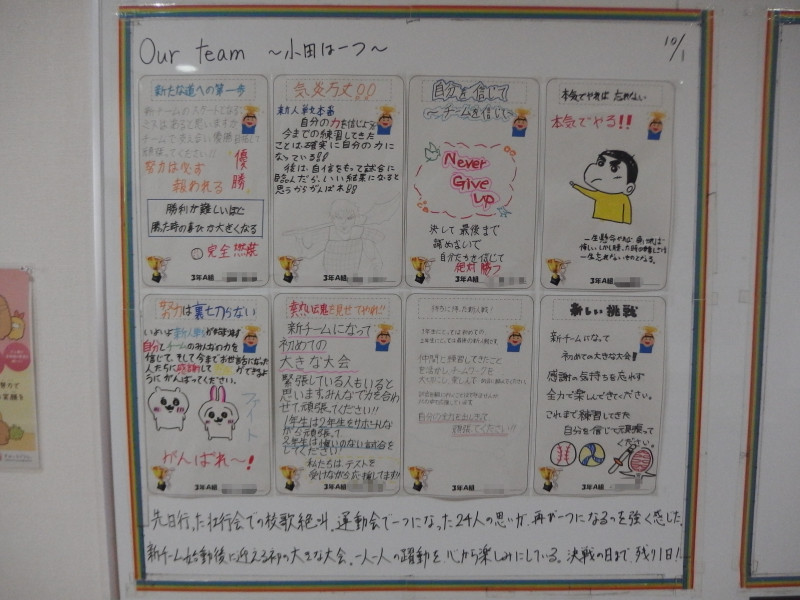 Our team 〜小田は一つ〜
10/1
新たな道への第一歩
新チームのスタートとなる
ミスはあると思いますが
チームで支え合い優勝目指して
頑張ってください!!
努力は必ず
報われる
優勝
勝利が難しいほど
勝った時の喜びが大きくなる
完全燃焼
3年A組
気炎万丈!!
新人戦本番
自分の力を信じよう
今までの練習してきた
ことは確実に自分の力に
なっている!!
後は、自信をもって試合に
臨んだら、いい結果になると
思うからがんばれ!!
3年A組
自分を信じて
チームを信じて
Never
Give
up
決して最後まで
諦めないで
自分たちを信じて
絶対勝つ
3年A組
本気でやれば 忘れない
本気でやる!!
3年A組
努力は裏切らない
いよいよ新人戦が
自分とチームのみんなの力を
信じて、そして今までお世話になった
人たちに感謝して
うにがんばってください。
ファイト
がんばれ〜!
3年A組
熱い魂を見せてやれ!!
新チームになって
初めての
大きな大会
緊張している人もいると
思いますがみんなで力を合わ
せて頑張ってください!!
1年生は2年生をサポートしな
がら頑張って
2年生は悔いのない試合を
してください
私たちは、テストを
受けながら応援してます!!
3年A組
待ちに待った新人戦!
仲間と練習してきたこと
を活かし、チームワークを
大切にし、楽しんで
自分の全力を出しきって
頑張ってください!!
3年A組
新しい挑戦
新チームになって
初めての大きな大会!!
感謝の気持ちを忘れず
全力で楽しんできてください。
これまで練習してきた
自分を信じて頑張って
ください。
3年A組
先日行った壮行会での校歌絶叫、運動会で一つになった24人の思いが、再び一つになるのを強く感じた。
新チーム始動後に迎える初の大きな大会。一人一人の躍動を心から楽しみにしている。決戦の日まで残り1日!